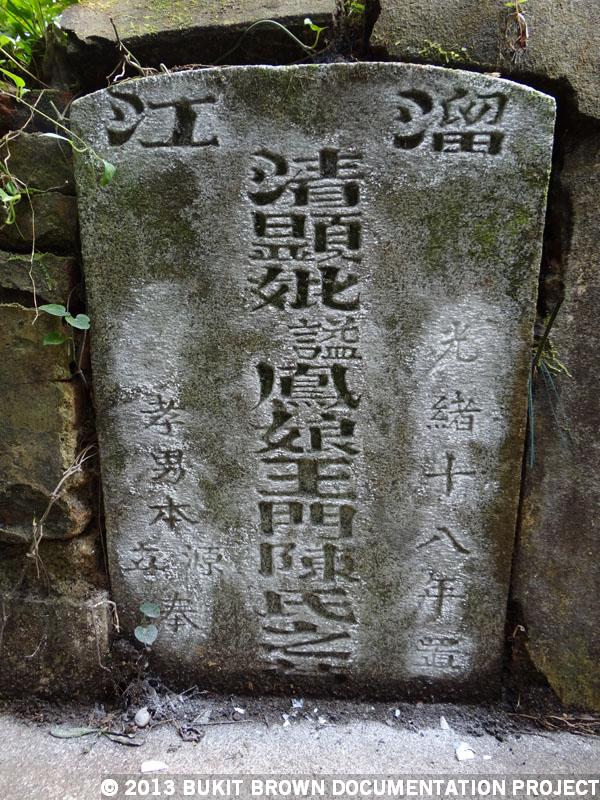 溜江
光緒十八年置
清顯妣謚鳳娘王門陳氏之墓
孝男本源奉
© 2013 BUKIT BROWN DOCUMENTATION PROJECT